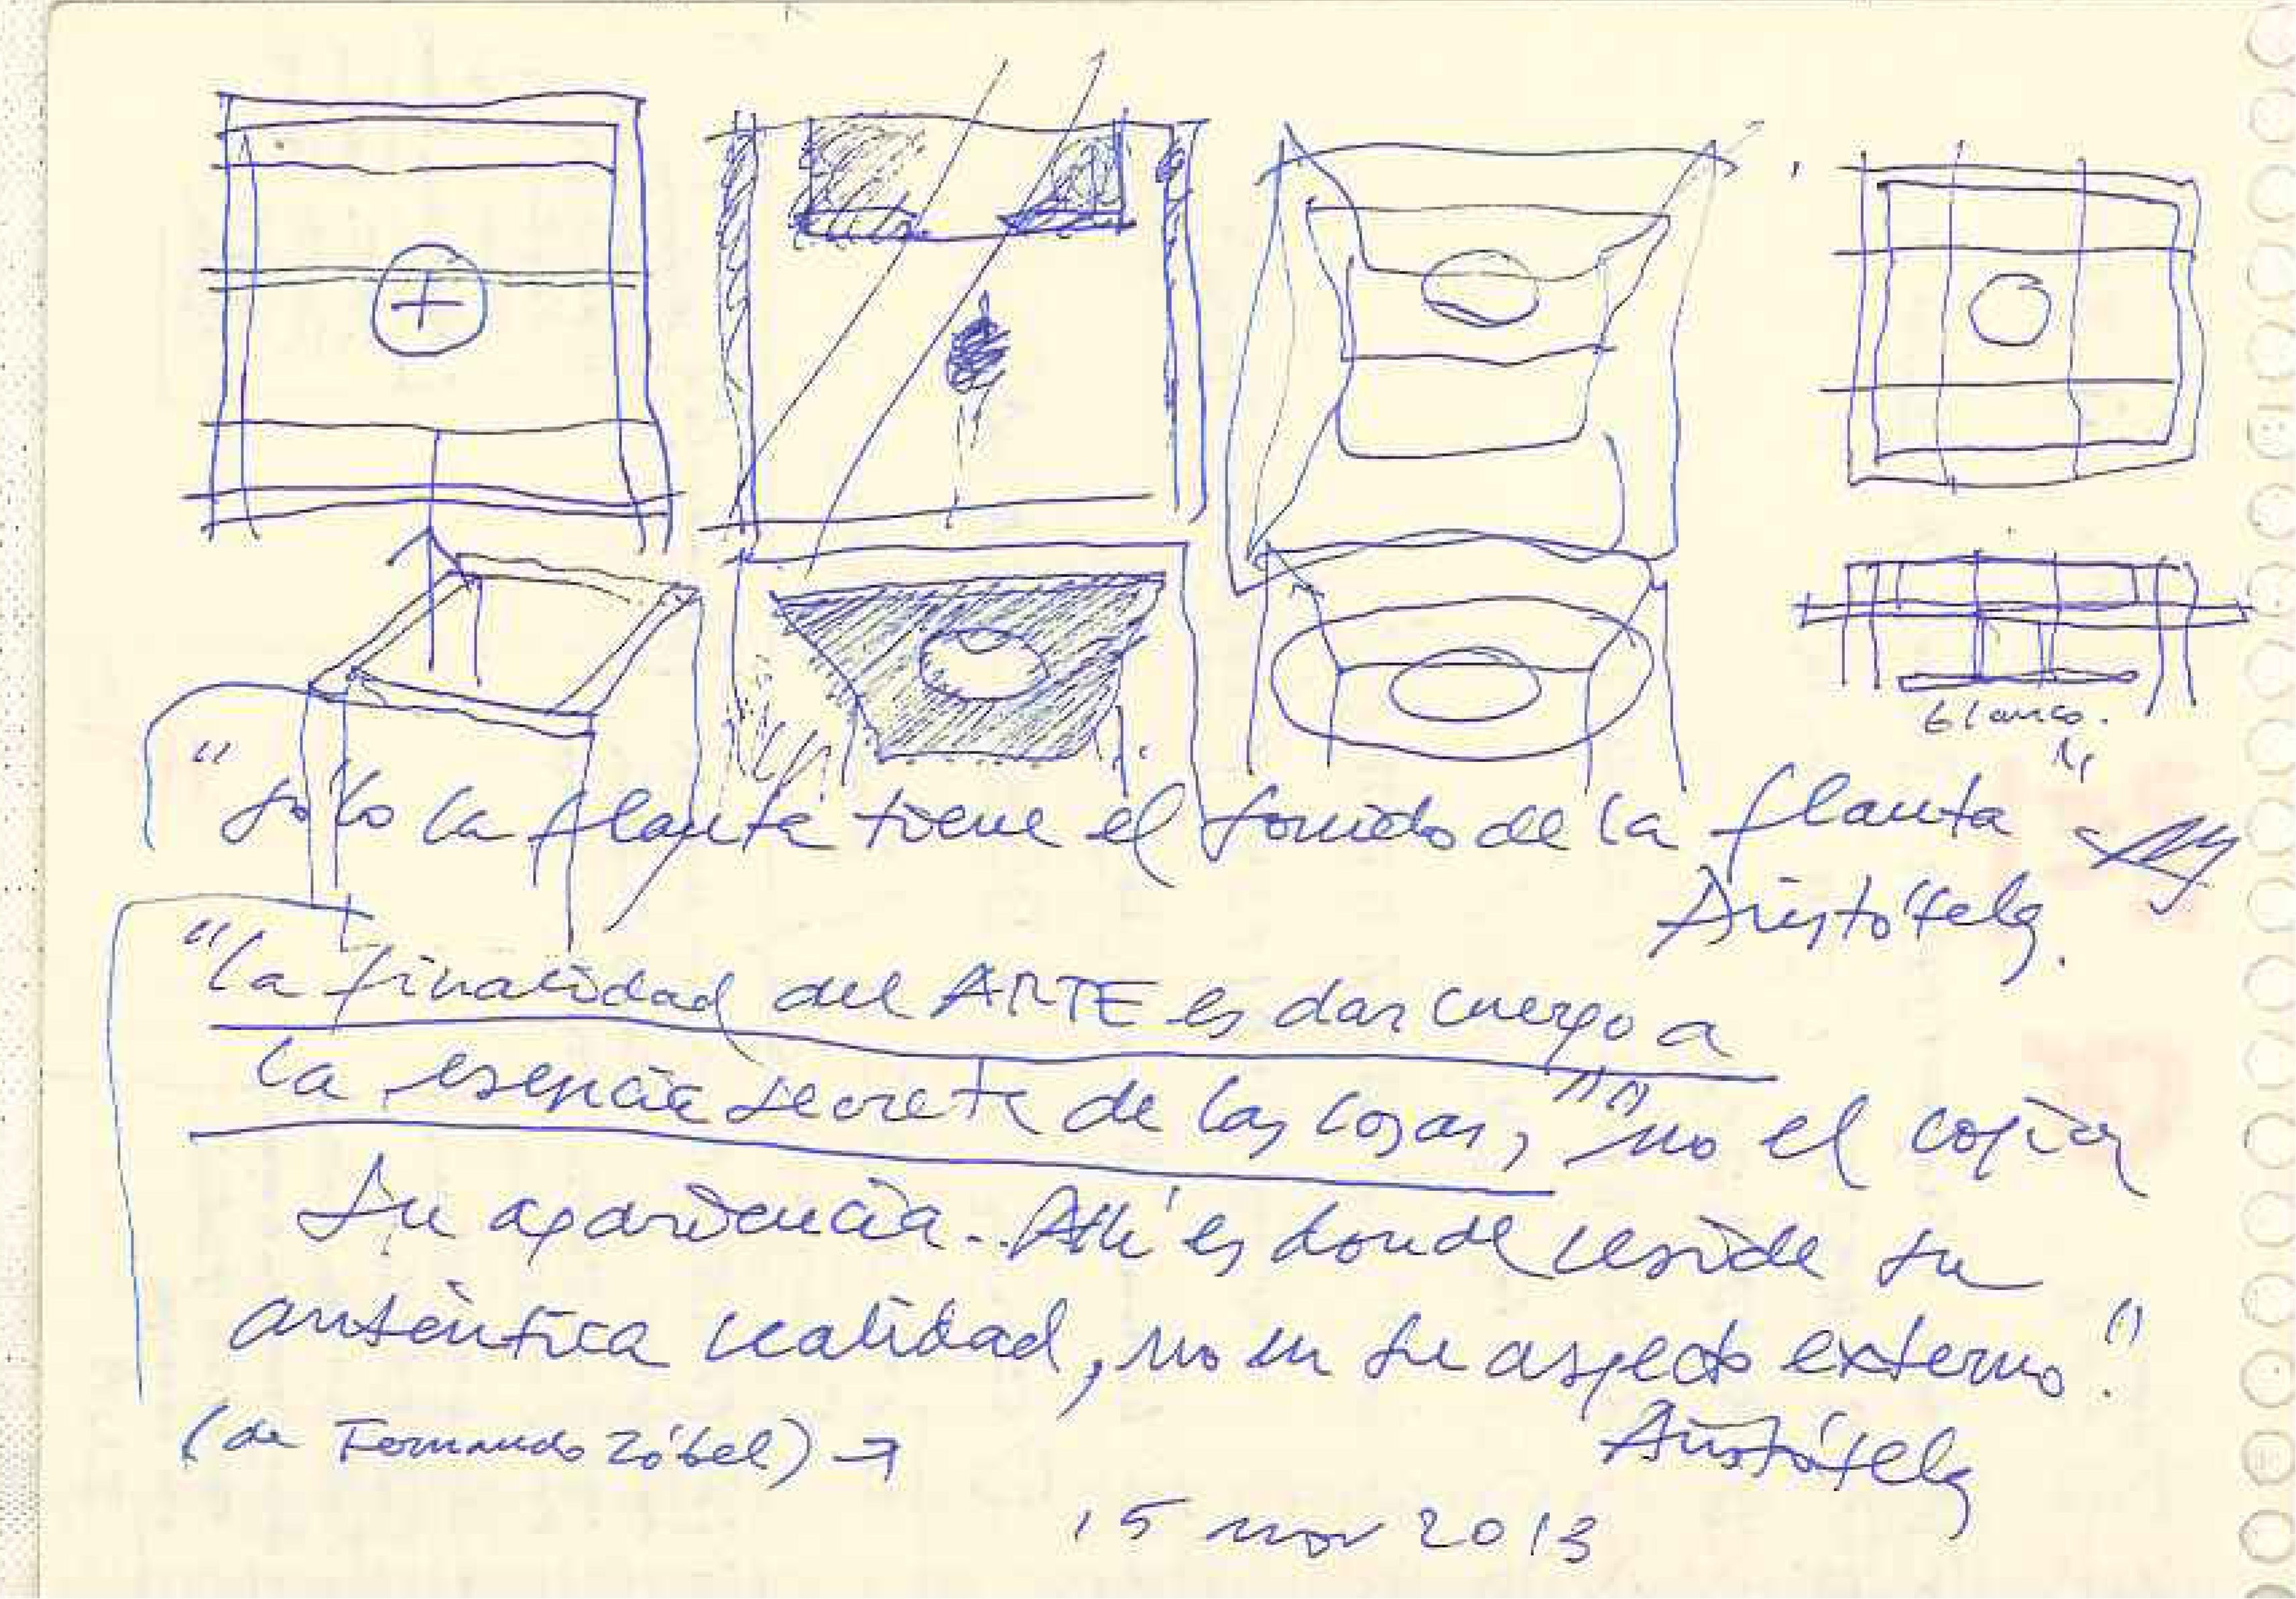 blanco.
"solo la flauta tiene el sonido de la flauta"
Aristóteles.
"la finalidad del ARTE es dar cuerpo a
la esencia secreta de las cosas," "no el copiar
su apariencia.. Allí es donde reside su
auténtica realidad, no en su aspecto externo."
Aristóteles
(de Fernando Zóbel) →
15 nov 2013